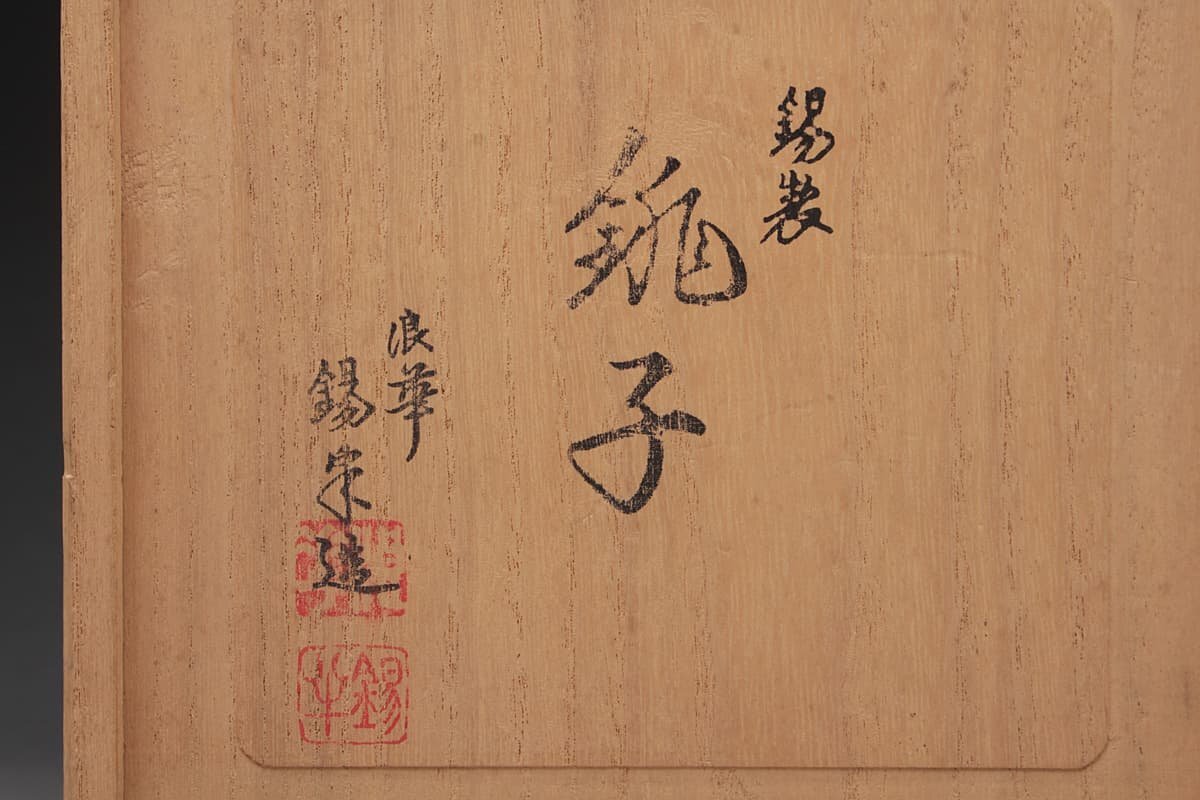 錫製
銚子
浪華
錫半造
錫半